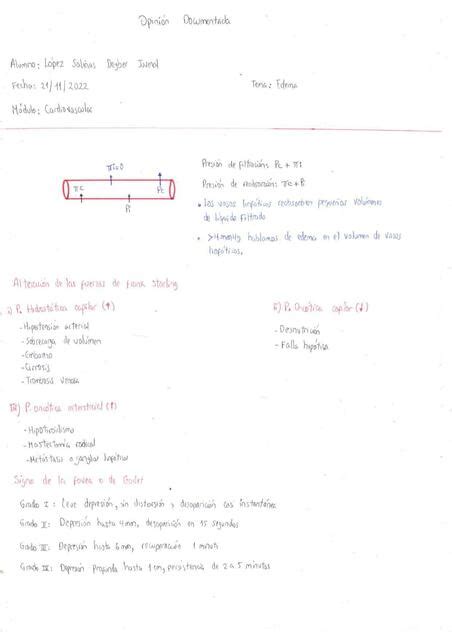 Opinión Documentada
Alumno: López Salinas Deyber Jusnol
Fecha: 21/11/2022 Tema: Edema
Módulo: Cardiovascular
πi=0 Pc
πc Pi
Presión de filtración: Pc + πi
Presión de reabsorción: πc + Pi
• Los vasos linfáticos reabsorben pequeños volúmenes
de líquido filtrado
• >4mmHg hablamos de edema en el volumen de vasos
linfáticos.
Alteración de las fuerzas de frank starling
I) P. Hidrostática capilar (↑)
- Hipertension arterial
- Sobrecarga de volumen
- Embarazo
- Cirrosis
- Trombosis venosa
II) P. Oncótica capilar (↓)
- Desnutrición
- Falla hepática
III) P. oncótica intersticial (↑)
- Hipotiroidismo
- Mastectomía radical
- Metástasis a ganglios linfáticos
Signo de la fovea o de Godet
Grado I : Leve depresión, sin distorsión y desaparición casi instantánea
Grado II: Depresión hasta 4mm, desaparición en 15 segundos
Grado III: Depresión hasta 6mm, recuperación 1 minuto
Grado IV: Depresión profunda hasta 1cm, persistencia de 2 a 5 minutos